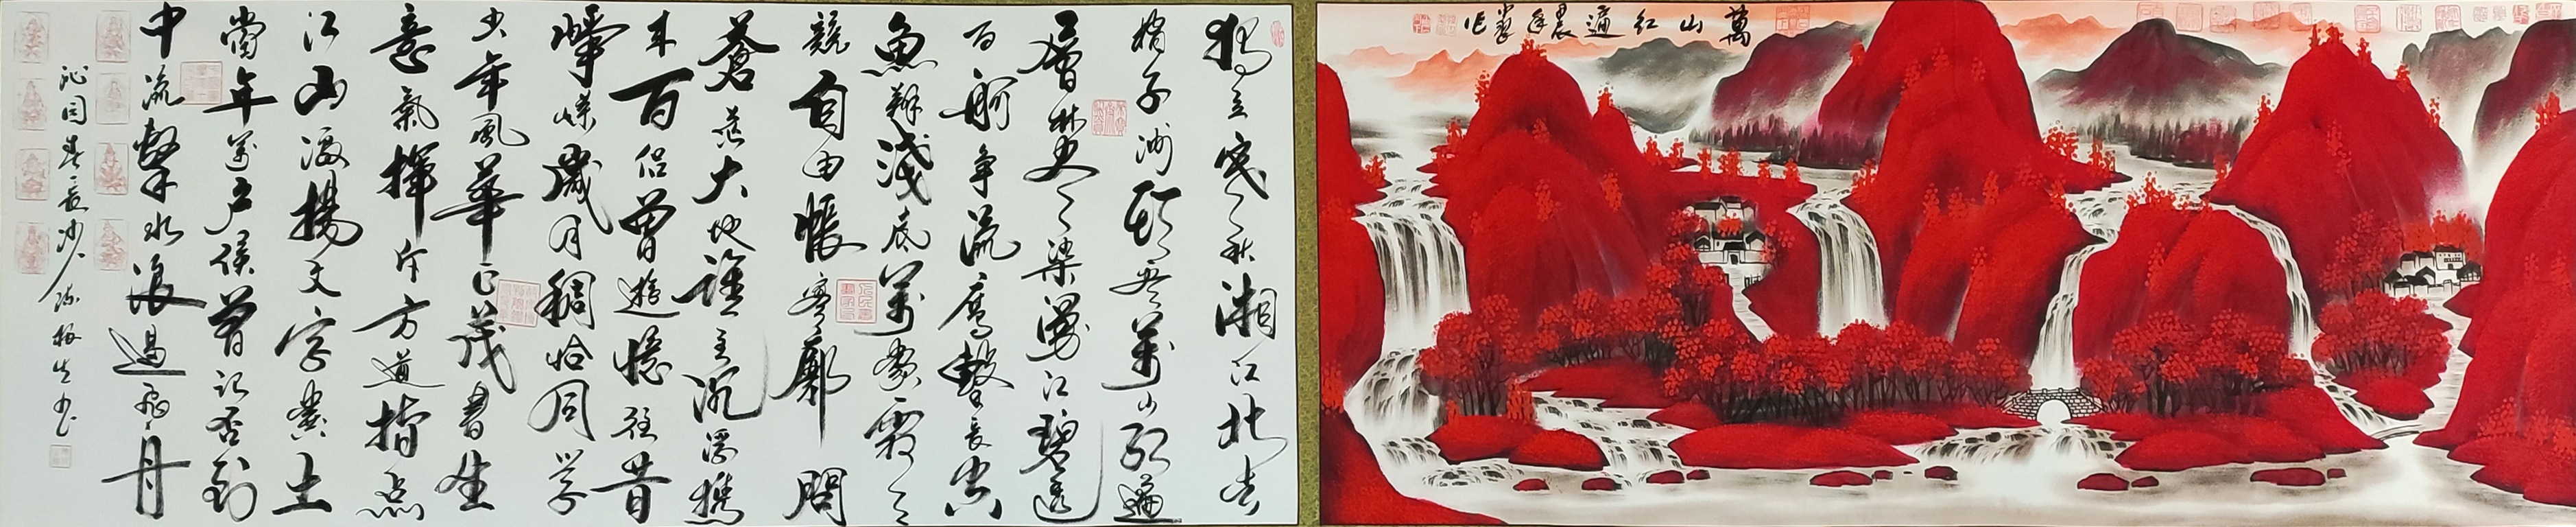 萬山紅遍
獨立寒秋湘江北去
橘子洲頭看萬山紅遍
層林尽染漫江碧透
百舸爭流鷹擊長空
魚翔淺底萬類霜天
競自由悵寥廓問
蒼茫大地誰主沉浮攜
來百侶曾遊憶往昔
崢嶸歲月稠恰同學
少年風華正茂書生
意氣揮斥方遒指點
江山激揚文字糞土
當年萬户侯曾記否到
中流擊水浪遏飛舟
沁园春長沙